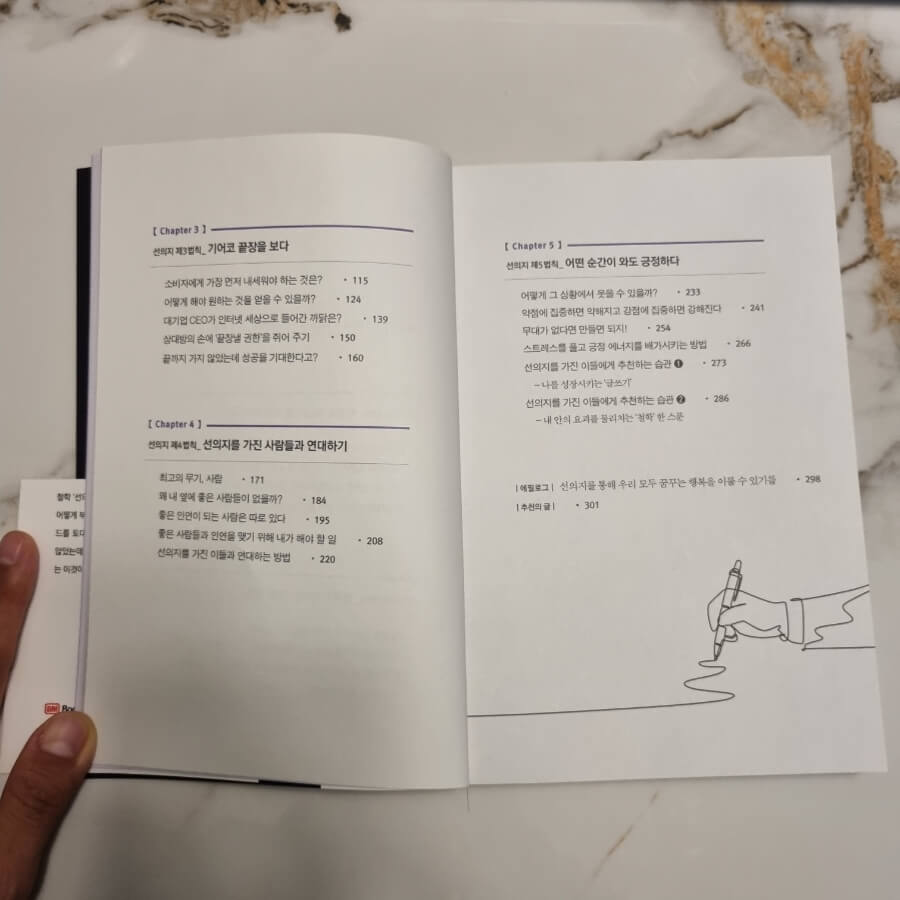 [ Chapter 3 ]
선의지 제3법칙_ 기어코 끝장을 보다
소비자에게 가장 먼저 내세워야 하는 것은? • 115
어떻게 해야 원하는 것을 얻을 수 있을까? • 124
대기업 CEO가 인터넷 세상으로 들어간 까닭은? • 139
상대방의 손에 '끝장낼 권한'을 쥐어 주기 • 150
끝까지 가지 않았는데 성공을 기대한다고? • 160
[ Chapter 4 ]
선의지 제4법칙_ 선의지를 가진 사람들과 연대하기
최고의 무기, 사람 • 171
왜 내 옆에 좋은 사람들이 없을까? • 184
좋은 인연이 되는 사람은 따로 있다 • 195
좋은 사람들과 인연을 맺기 위해 내가 해야 할 일 • 208
선의지를 가진 이들과 연대하는 방법 • 220
철학 '선의
어떻게 부
드를 토대
않았는데
는 이것이
BM Boo
[ Chapter 5 ]
선의지 제5법칙_ 어떤 순간이 와도 긍정하다
어떻게 그 상황에서 웃을 수 있을까? • 233
약점에 집중하면 약해지고 강점에 집중하면 강해진다 • 241
무대가 없다면 만들면 되지! • 254
스트레스를 풀고 긍정 에너지를 배가시키는 방법 • 266
선의지를 가진 이들에게 추천하는 습관 ❶ • 273
– 나를 성장시키는 '글쓰기'
선의지를 가진 이들에게 추천하는 습관 ❷ • 286
– 내 안의 요괴를 물리치는 '철학' 한 스푼
| 에필로그 | 선의지를 통해 우리 모두 꿈꾸는 행복을 이룰 수 있기를 • 298
| 추천의 글 | • 301